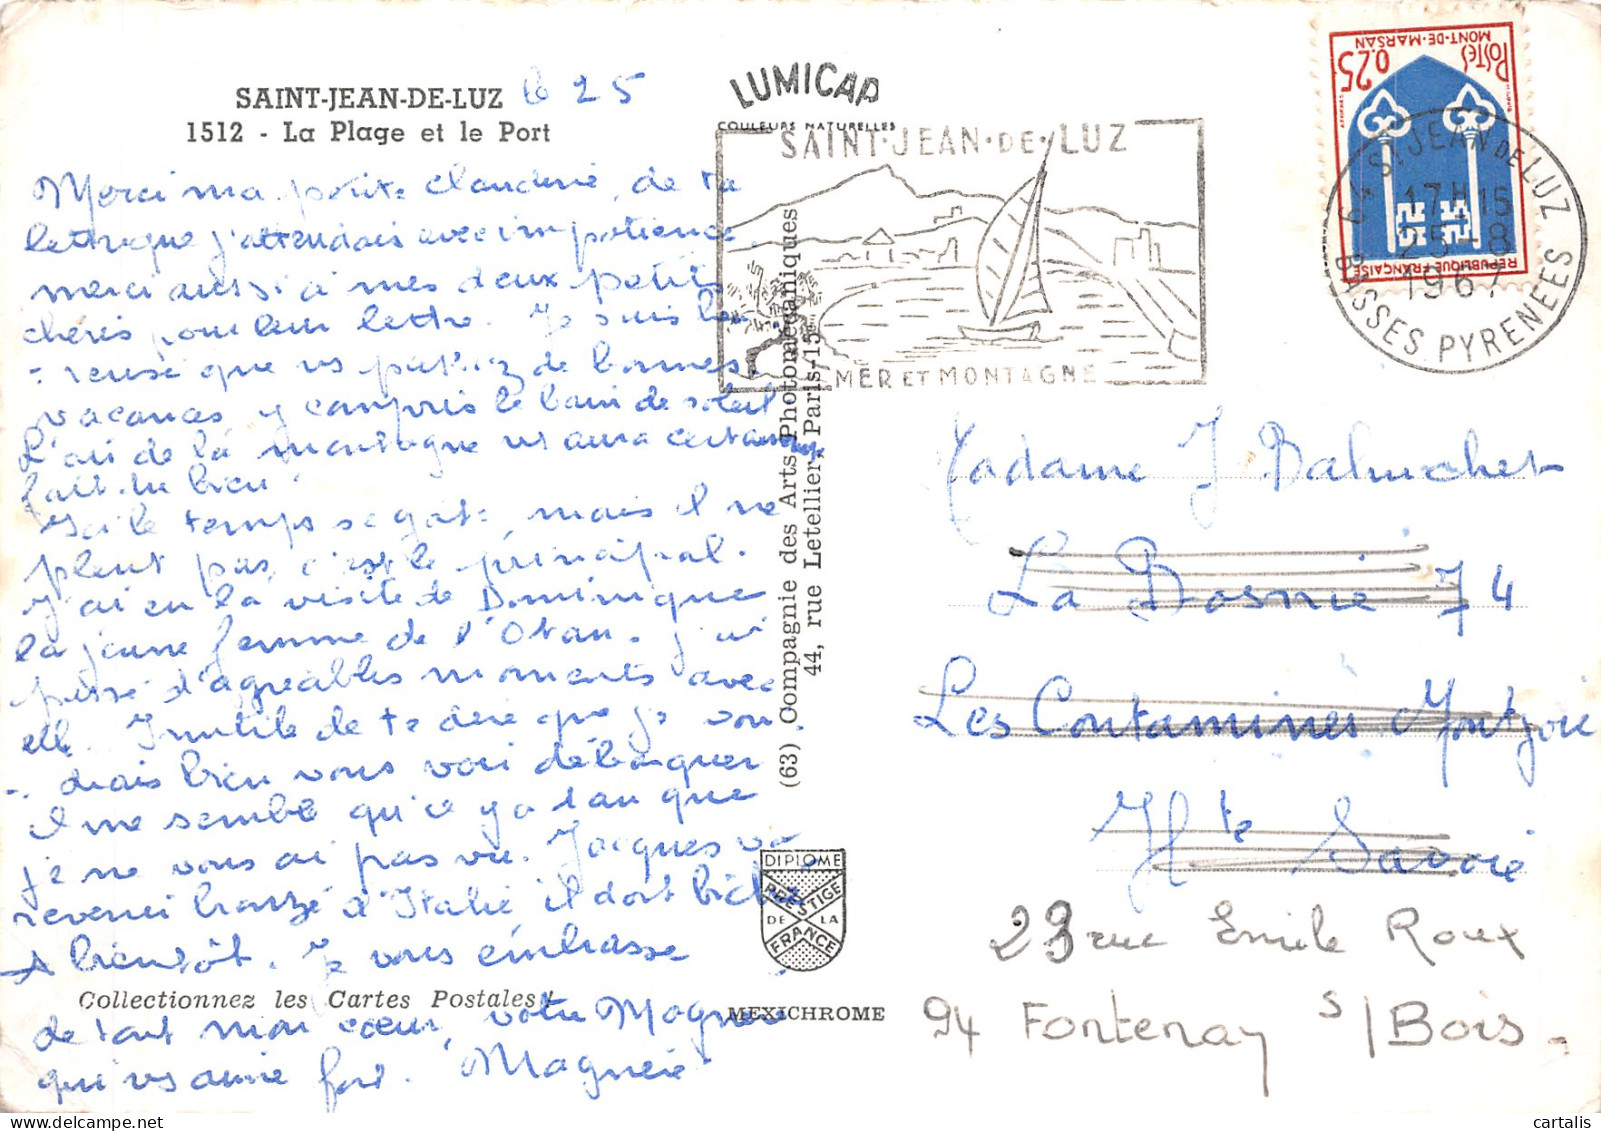 SAINT-JEAN-DE-LUZ le 25
1512 - La Plage et le Port
Merci ma petite Claudine, de ta
lettre que j'attendais avec impatience.
merci aussi à mes deux petits
chéris pour leur lettre. Je suis heu
-reuse que vs passiez de bonnes
vacances y compris le bain de soleil
L'air de la montagne vs aura certainement
fait du bien
Ici le temps se gate, mais il ne
pleut pas, c'est le principal.
J'ai eu la visite de Dominique
la jeune femme de l'Otan. J'ai
passé d'agréables moments avec
elle. Inutile de te dire que je vou
-drais bien vous voir débarquer
il me semble qu'il y a 1 an que
je ne vous ai pas vu. Jacques va
revenir bronzé d'Italie il doit
A bientôt. Je vous embrasse
Collectionnez les Cartes Postales!
de tout mon cœur, votre
qui vs aime fort.
LUMICAP
COULEURS NATURELLES
SAINT·JEAN·DE·LUZ
MER ET MONTAGNE
(63) Compagnie des Arts Photomécaniques
44, rue Letellier, Paris-15e
DIPLOME
PRESTIGE
DE LA
FRANCE
MEXICHROME
POSTES
0,25
MONT-DE-MARSAN
REPUBLIQUE FRANÇAISE
64 ST JEAN DE LUZ
17H15
25-8
1967
BASSES PYRENEES
Madame J Balmchet
La Bosnie 74
Les Contamines Montjoie
Hte Savoie
23 rue Emile Roux
94 Fontenay s/Bois.
www.cartalis.com